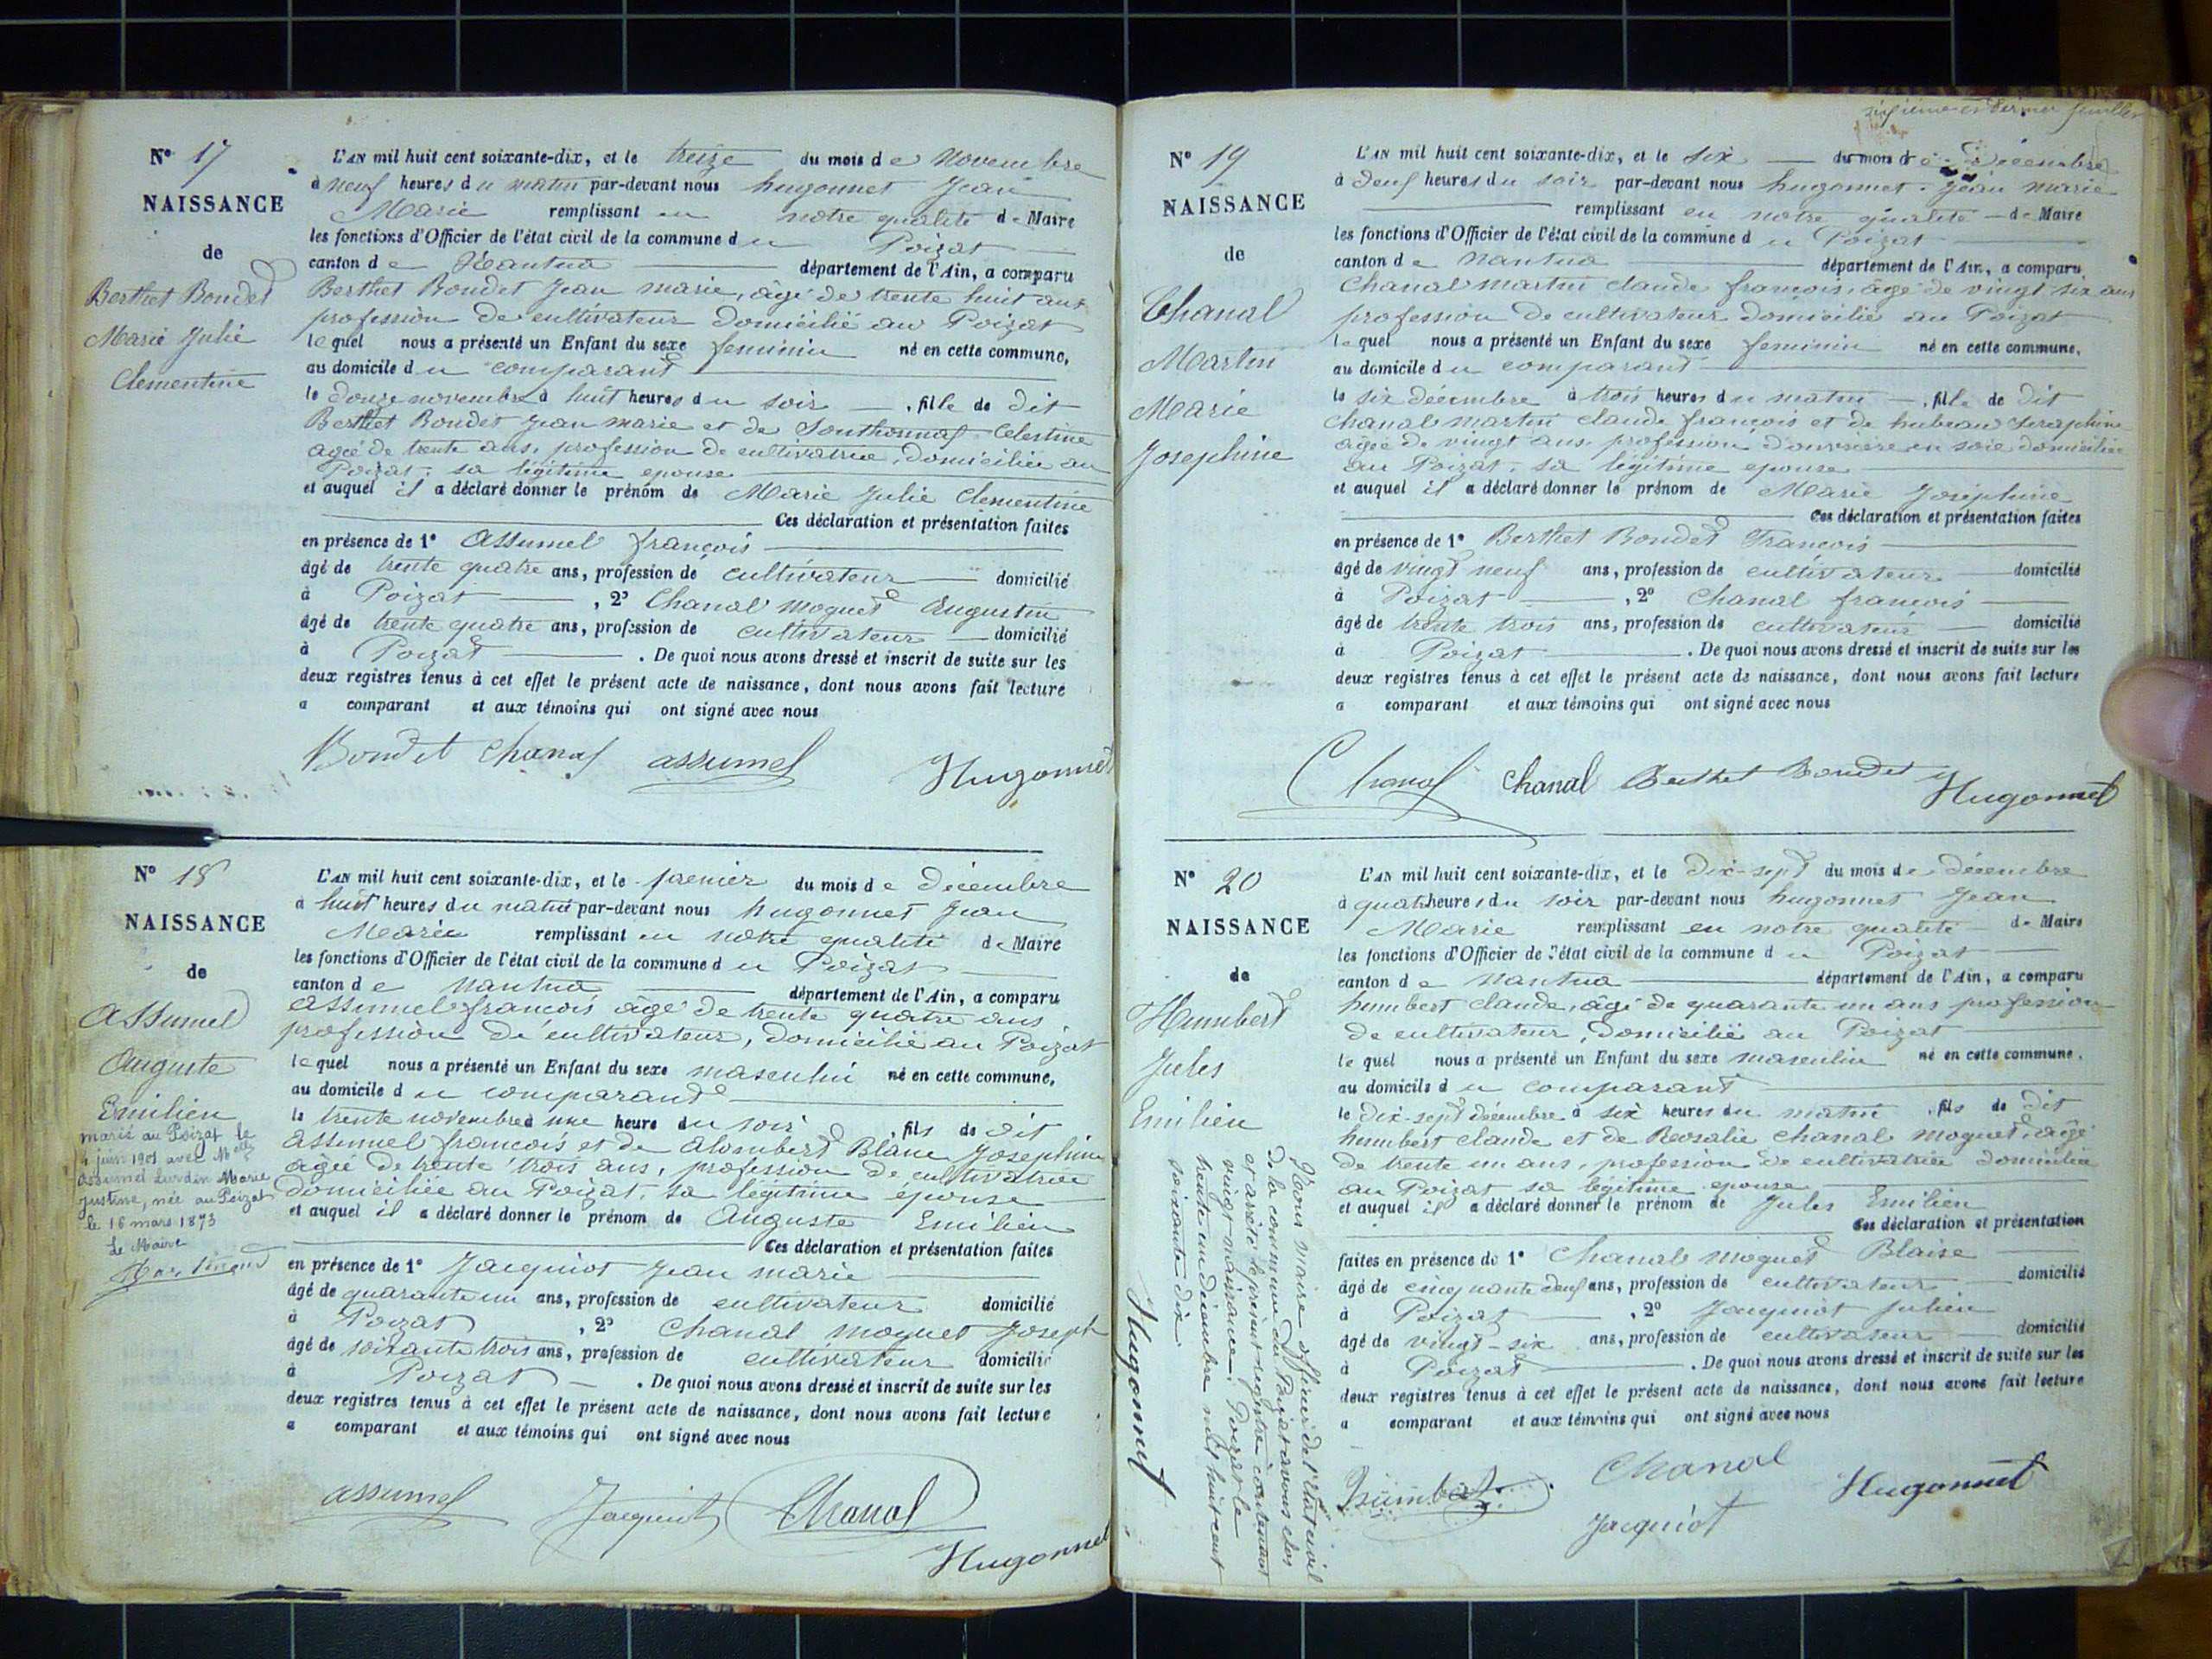 Nº 17
NAISSANCE
de
Berthet Bondet
Marie Julie
Clementine
L'AN mil huit cent soixante-dix, et le treize du mois de Novembre
à neuf heures du matin par-devant nous hugonnet Jean
Marie remplissant en notre qualité de Maire
les fonctions d'Officier de l'état civil de la commune du Poizat
canton de Nantua département de l'Ain, a comparu
Berthet Bondet Jean marie, âgé de trente huit ans
profession de cultivateur domicilié au Poizat
lequel nous a présenté un Enfant du sexe feminin né en cette commune,
au domicile du comparant
le douze novembre à huit heures du soir, fille de dit
Berthet Bondet Jean marie et de Southonnaf Celestine
agée de trente ans, profession de cultivatrice, domiciliée au
Poizat; sa légitime epouse
et auquel il a déclaré donner le prénom de Marie Julie Clementine
Ces déclaration et présentation faites
en présence de 1º Assumel françois
âgé de trente quatre ans, profession de cultivateur domicilié
à Poizat, 2º Chanal moguet Augustin
âgé de trente quatre ans, profession de cultivateur domicilié
à Poizat. De quoi nous avons dressé et inscrit de suite sur les
deux registres tenus à cet effet le présent acte de naissance, dont nous avons fait lecture
a comparant et aux témoins qui ont signé avec nous
Bondet Chanal assumel Hugonnet
Nº 18
NAISSANCE
de
Assumel
Auguste
Emilien
marié au Poizat le
4 juin 1901 avec Melle
Assumel Lurdin Marie
Justine, née au Poizat
le 16 mars 1873
Le Maire
L'AN mil huit cent soixante-dix, et le premier du mois de décembre
à huit heures du matin par-devant nous hugonnet Jean
Marie remplissant en notre qualité de Maire
les fonctions d'Officier de l'état civil de la commune du Poizat
canton de Nantua département de l'Ain, a comparu
Assumel françois âgé de trente quatre ans
profession de cultivateur, domicilié au Poizat
lequel nous a présenté un Enfant du sexe masculin né en cette commune,
au domicile du comparant
le trente novembre à une heure du soir, fils de dit
Assumel françois et de Alombert Blanc Josephine
âgée de trente trois ans, profession de cultivatrice
domiciliée au Poizat, sa légitime épouse
et auquel il a déclaré donner le prénom de Auguste Emilien
Ces déclaration et présentation faites
en présence de 1º Jacquiot Jean marie
âgé de quarante un ans, profession de cultivateur domicilié
à Poizat, 2º Chanal moguet Joseph
âgé de soixante trois ans, profession de cultivateur domicilié
à Poizat. De quoi nous avons dressé et inscrit de suite sur les
deux registres tenus à cet effet le présent acte de naissance, dont nous avons fait lecture
a comparant et aux témoins qui ont signé avec nous
assumel Jacquiot Chanal
Hugonnet
dernier feuillet
Nº 19
NAISSANCE
de
Chanal
Martin
Marie
Josephine
L'AN mil huit cent soixante-dix, et le six du mois de Décembre
à deuf heures du soir par-devant nous hugonnet Jean marie
remplissant en notre qualité de Maire
les fonctions d'Officier de l'état civil de la commune du Poizat
canton de Nantua département de l'Ain, a comparu
Chanal martin claude françois, âgé de vingt six ans
profession de cultivateur domicilié au Poizat
lequel nous a présenté un Enfant du sexe feminin né en cette commune,
au domicile du comparant
le six décembre à trois heures du matin, fille de dit
Chanal martin claude françois et de hubeau Seraphine
âgée de vingt ans, profession d'ouvrière en soie domiciliée
au Poizat, sa légitime epouse
et auquel il a déclaré donner le prénom de Marie Josephine
Ces déclaration et présentation faites
en présence de 1º Berthet Bondet François
âgé de vingt neuf ans, profession de cultivateur domicilié
à Poizat, 2º Chanal françois
âgé de trente trois ans, profession de cultivateur domicilié
à Poizat. De quoi nous avons dressé et inscrit de suite sur les
deux registres tenus à cet effet le présent acte de naissance, dont nous avons fait lecture
a comparant et aux témoins qui ont signé avec nous
Chanal Chanal Berthet Bondet Hugonnet
Nº 20
NAISSANCE
de
Humbert
Jules
Emilien
L'AN mil huit cent soixante-dix, et le Dix-sept du mois de décembre
à quatre heures du soir par-devant nous hugonnet Jean
Marie remplissant en notre qualité de Maire
les fonctions d'Officier de l'état civil de la commune du Poizat
canton de Nantua département de l'Ain, a comparu
humbert claude, âgé de quarante un ans profession
de cultivateur, domicilié au Poizat
lequel nous a présenté un Enfant du sexe masculin né en cette commune,
au domicile du comparant
le dix-sept décembre à six heures du matin, fils de dit
humbert claude et de Rosalie chanal moguet, âgé
de trente un ans, profession de cultivatrice domiciliée
au Poizat sa légitime epouse
et auquel il a déclaré donner le prénom de Jules Emilien
Ces déclaration et présentation
faites en présence de 1º Chanal moguet Blaise
âgé de cinquante deuf ans, profession de cultivateur domicilié
à Poizat, 2º Jacquiot Julien
âgé de vingt-six ans, profession de cultivateur domicilié
à Poizat. De quoi nous avons dressé et inscrit de suite sur les
deux registres tenus à cet effet le présent acte de naissance, dont nous avons fait lecture
a comparant et aux témoins qui ont signé avec nous
humbert Chanal Hugonnet
Jacquiot
Nous maire officier de l'état civil
de la commune du Poizat avons clos
et arrêté le présent registre contenant
vingt naissances. Poizat le
trente un décembre mil huit cent
soixante dix.
Hugonnet